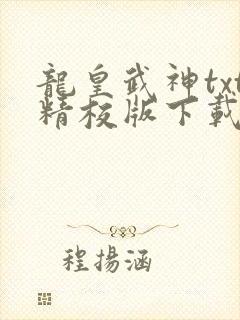 龍皇武神txt
精校版下載
程揚涵